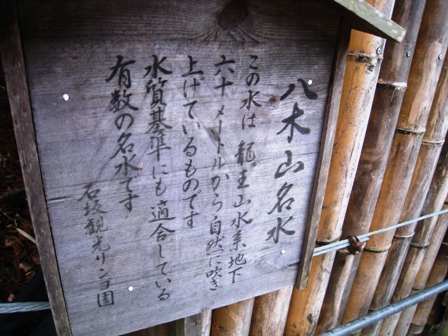 八木山名水
この水は 龍王山水系地下
六十メートルから自然に吹き
上げているものです
水質基準にも適合している
有数の名水です
石坂観光リンゴ園